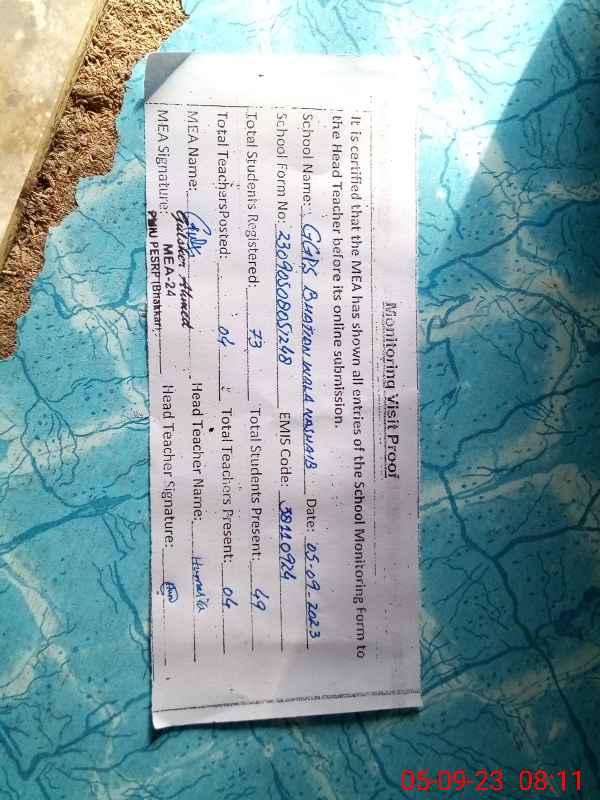 Monitoring Visit Proof
It is certified that the MEA has shown all entries of the School Monitoring Form to
the Head Teacher before its online submission.
School Name: GGPS BHATIAN WALA NASHAIB Date: 05-09-2023
School Form No: 23090508051248 EMIS Code: 38110924
Total Students Registered: 73 Total Students Present: 49
Total TeachersPosted: 04 Total Teachers Present: 04
MEA Name: Gulsher Ahmed Head Teacher Name: Humaira
MEA Signature: Head Teacher Signature:
MEA-24
PMIU PESRP (Bhakkar)
05-09-23 08:11